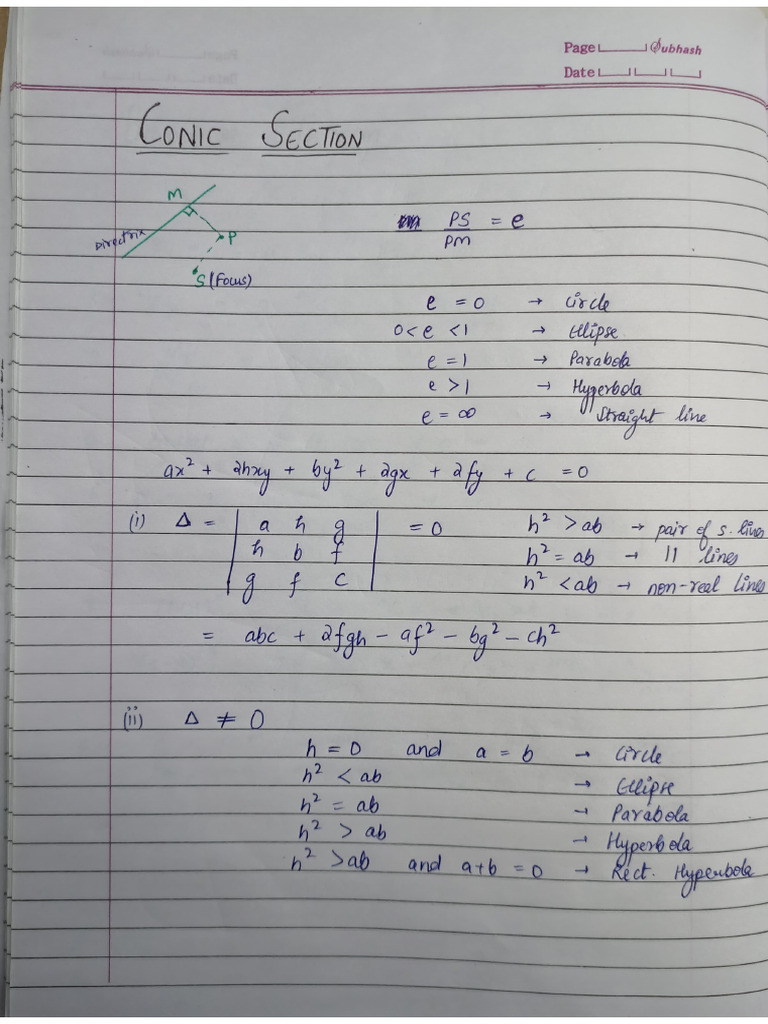 Page Subhash
Date
CONIC SECTION
M
Directrix
P
S (Focus)
PS/PM = e
e = 0 → Circle
0 < e < 1 → Ellipse
e = 1 → Parabola
e > 1 → Hyperbola
e = ∞ → Straight line
ax² + 2hxy + by² + 2gx + 2fy + c = 0
(i) Δ = | a h g | = 0 h² > ab → pair of s. lines
| h b f | h² = ab → || lines
| g f c | h² < ab → non-real lines
= abc + 2fgh - af² - bg² - ch²
(ii) Δ ≠ 0
h = 0 and a = b → Circle
h² < ab → Ellipse
h² = ab → Parabola
h² > ab → Hyperbola
h² > ab and a+b = 0 → Rect. Hyperbola